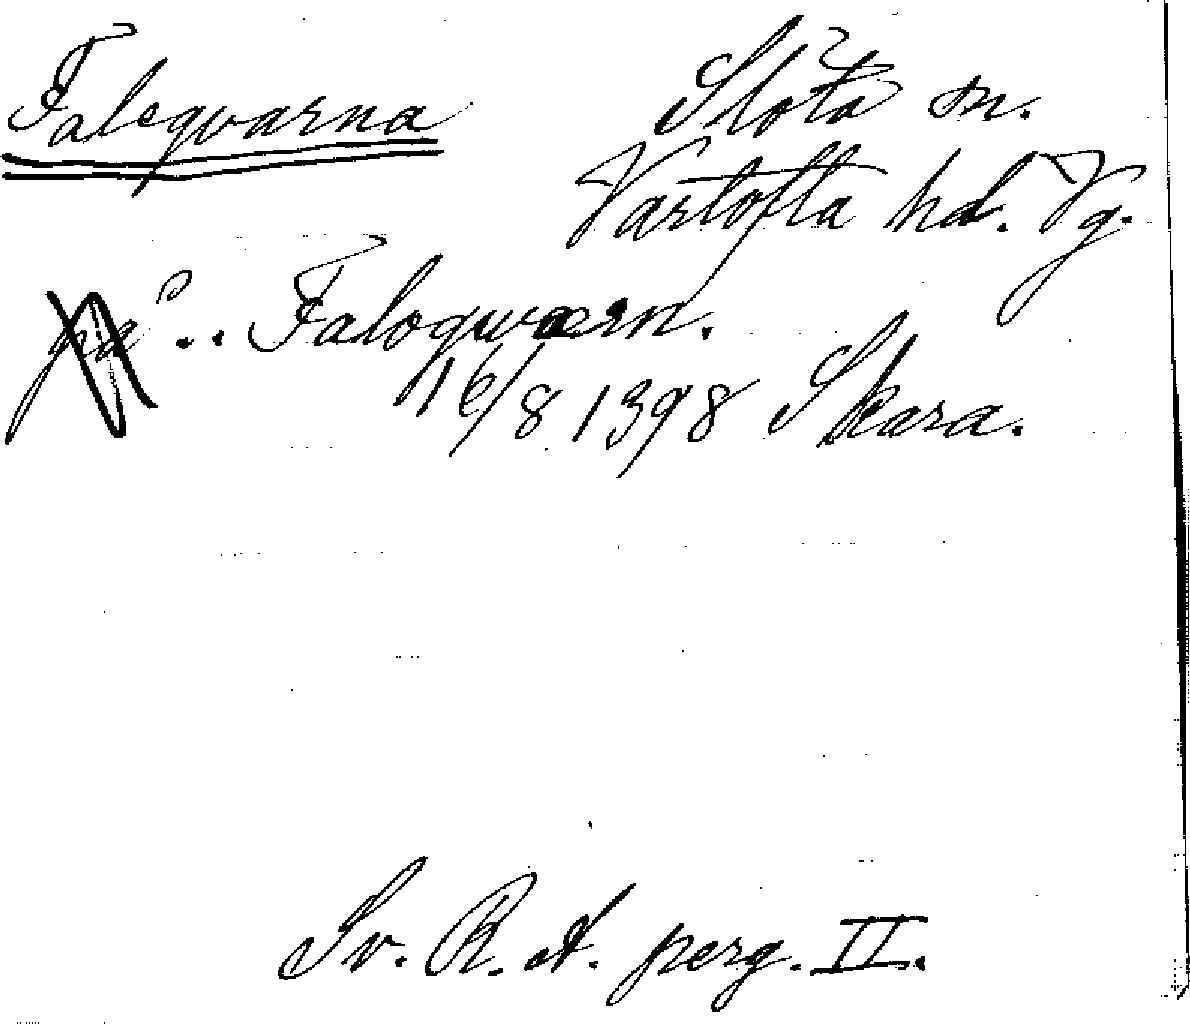 Faleqvarna
Slöta sn.
Vartofta hd. Vg.
på .. Faloqwærn.
16/8 1398 Skara.
Sv. R. A. perg. II.